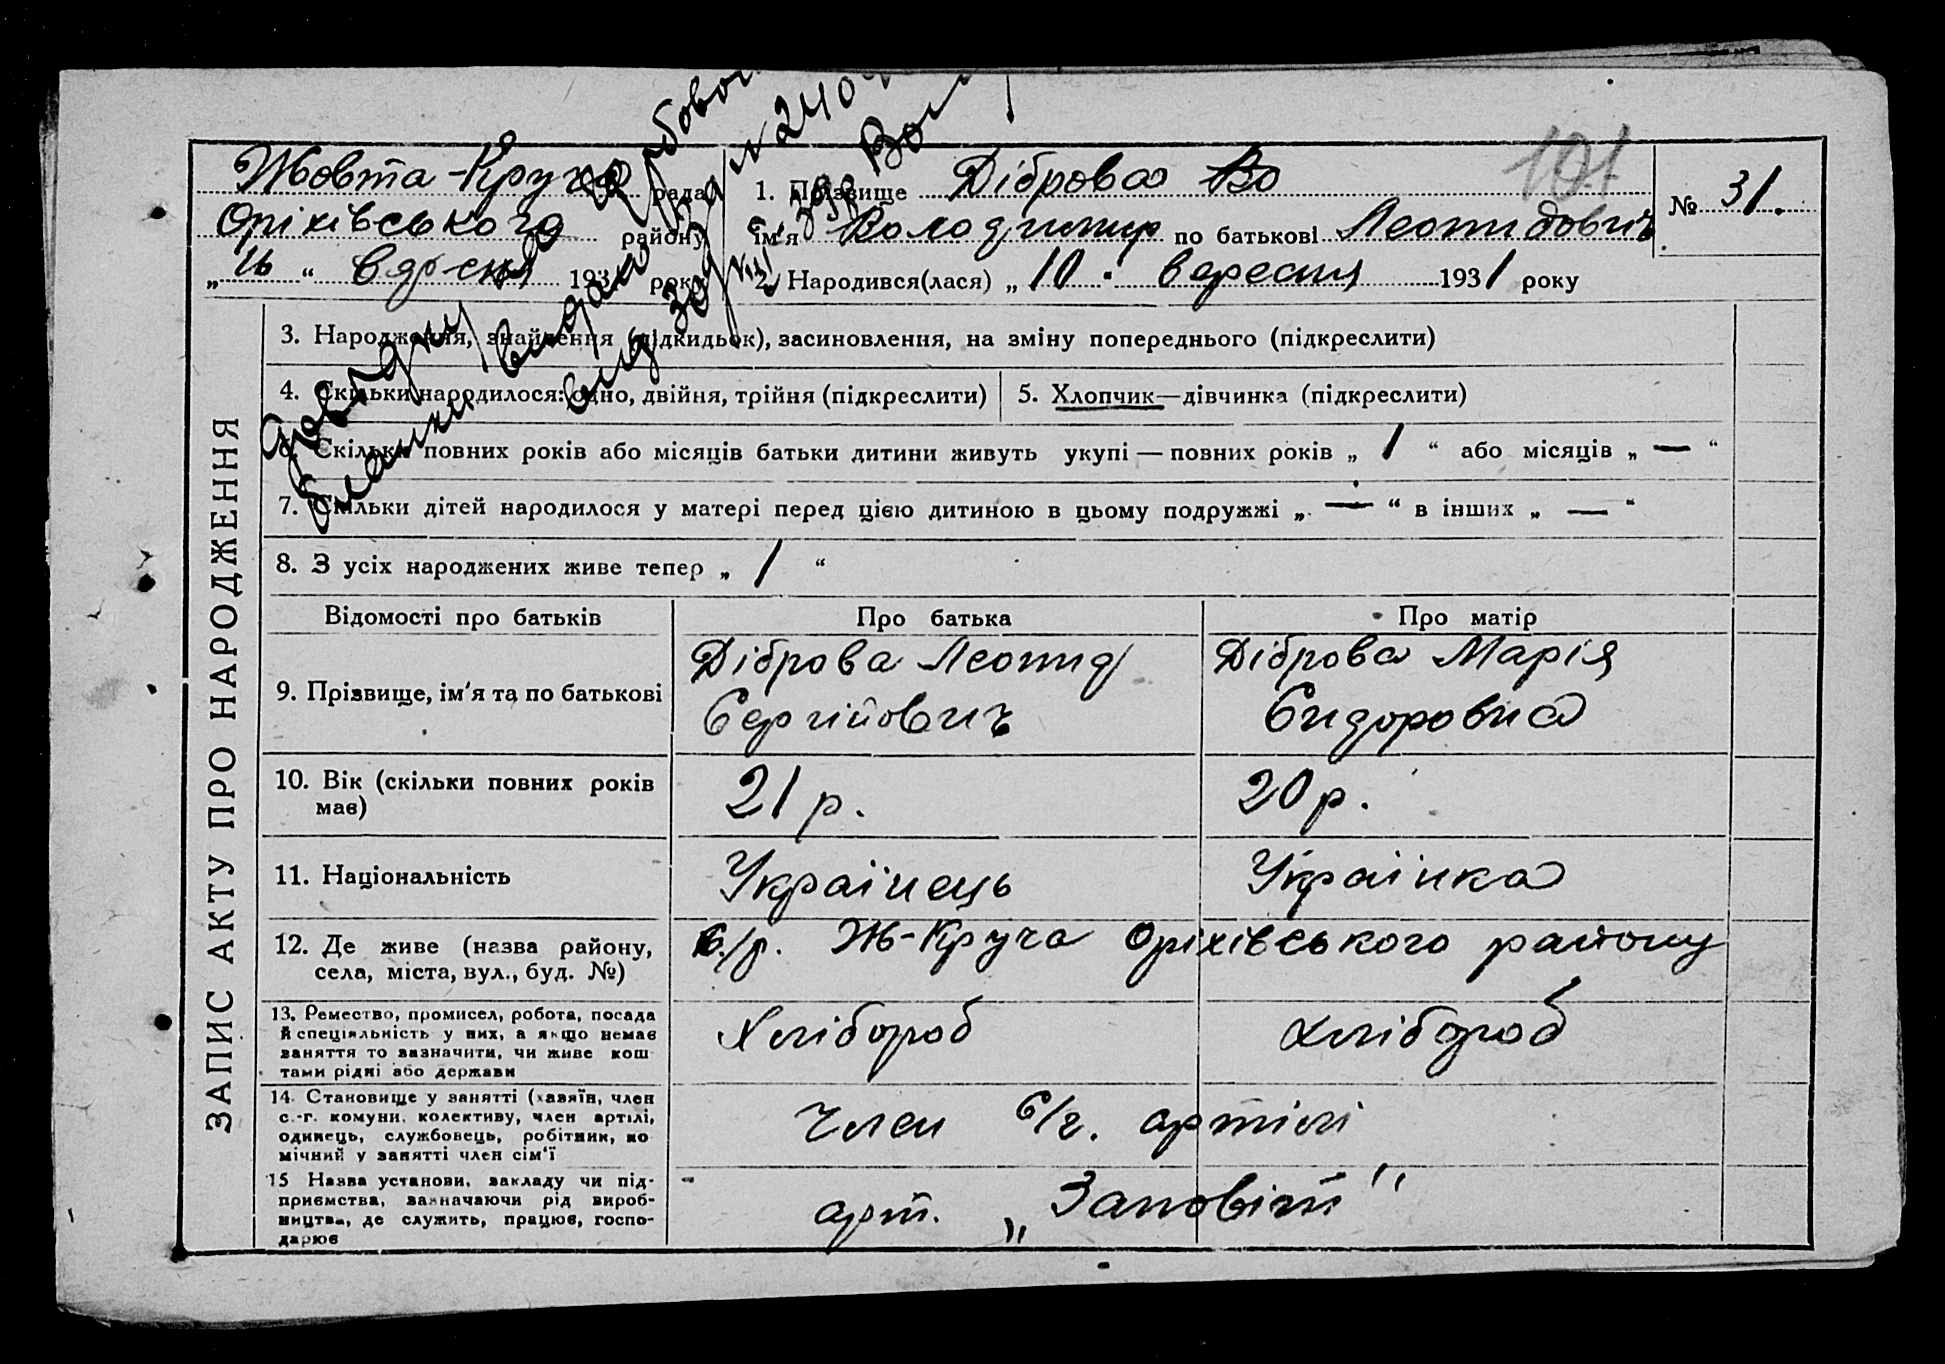 101
Жовта-Круча рада
Оріхівського району
„16“ вересня 1931 року
1. Прізвище Діброва Во
№ 31.
ім'я Володимир по батькові Леонидович
2. Народився(лася) „10. вересня 1931 року
ЗАПИС АКТУ ПРО НАРОДЖЕННЯ
3. Народження, знайдення (підкидьок), засиновлення, на зміну попереднього (підкреслити)
4. Скільки народилося: одно, двійня, трійня (підкреслити)
5. Хлопчик—дівчинка (підкреслити)
6. Скільки повних років або місяців батьки дитини живуть укупі — повних років „ 1 “ або місяців „ — “
7. Скільки дітей народилося у матері перед цією дитиною в цьому подружжі „ — “ в інших „ — “
8. З усіх народжених живе тепер „ 1 “
Відомості про батьків
Про батька
Про матір
9. Прізвище, ім'я та по батькові
Діброва Леонид
Сергійович
Діброва Марія
Сидоровна
10. Вік (скільки повних років
має)
21 р.
20 р.
11. Національність
Українець
Українка
12. Де живе (назва району,
села, міста, вул., буд. №)
с./р. Ж-Круча Оріхівського району
13. Ремество, промисел, робота, посада
й спеціяльність у них, а якщо немає
заняття то зазначити, чи живе кош
тами рідні або держави
Хлібороб
хлібороб
14. Становище у занятті (хазяїн, член
с.-г. комуни, колективу, член артілі,
одинець, службовець, робітник, по
мічний у занятті член сім'ї
член с/г. артілі
15 Назва установи, закладу чи під-
приємства, зазначаючи рід вироб-
ництва, де служить, працює, госпо-
дарює
арт. „Заповіт"